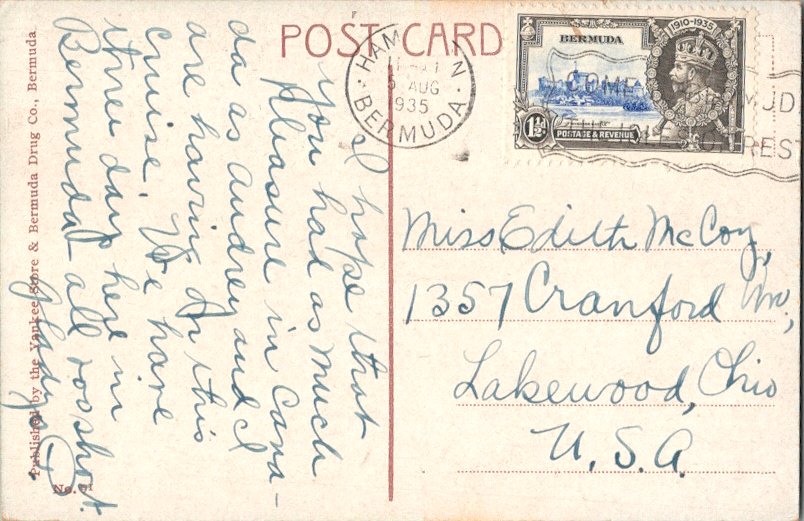 POST CARD
HAMILTON
5 AUG
1935
BERMUDA
1910-1935
BERMUDA
1½D
POSTAGE & REVENUE
COME
I hope that
you had as much
pleasure in Cana-
da as Audrey and I
are having on this
cruise. We have
three days here in
Bermuda all too short.
Gladys
Miss Edith McCoy,
1357 Cranford Av.,
Lakewood, Ohio
U.S.A.
Published by the Yankee Store & Bermuda Drug Co., Bermuda.
No. 91